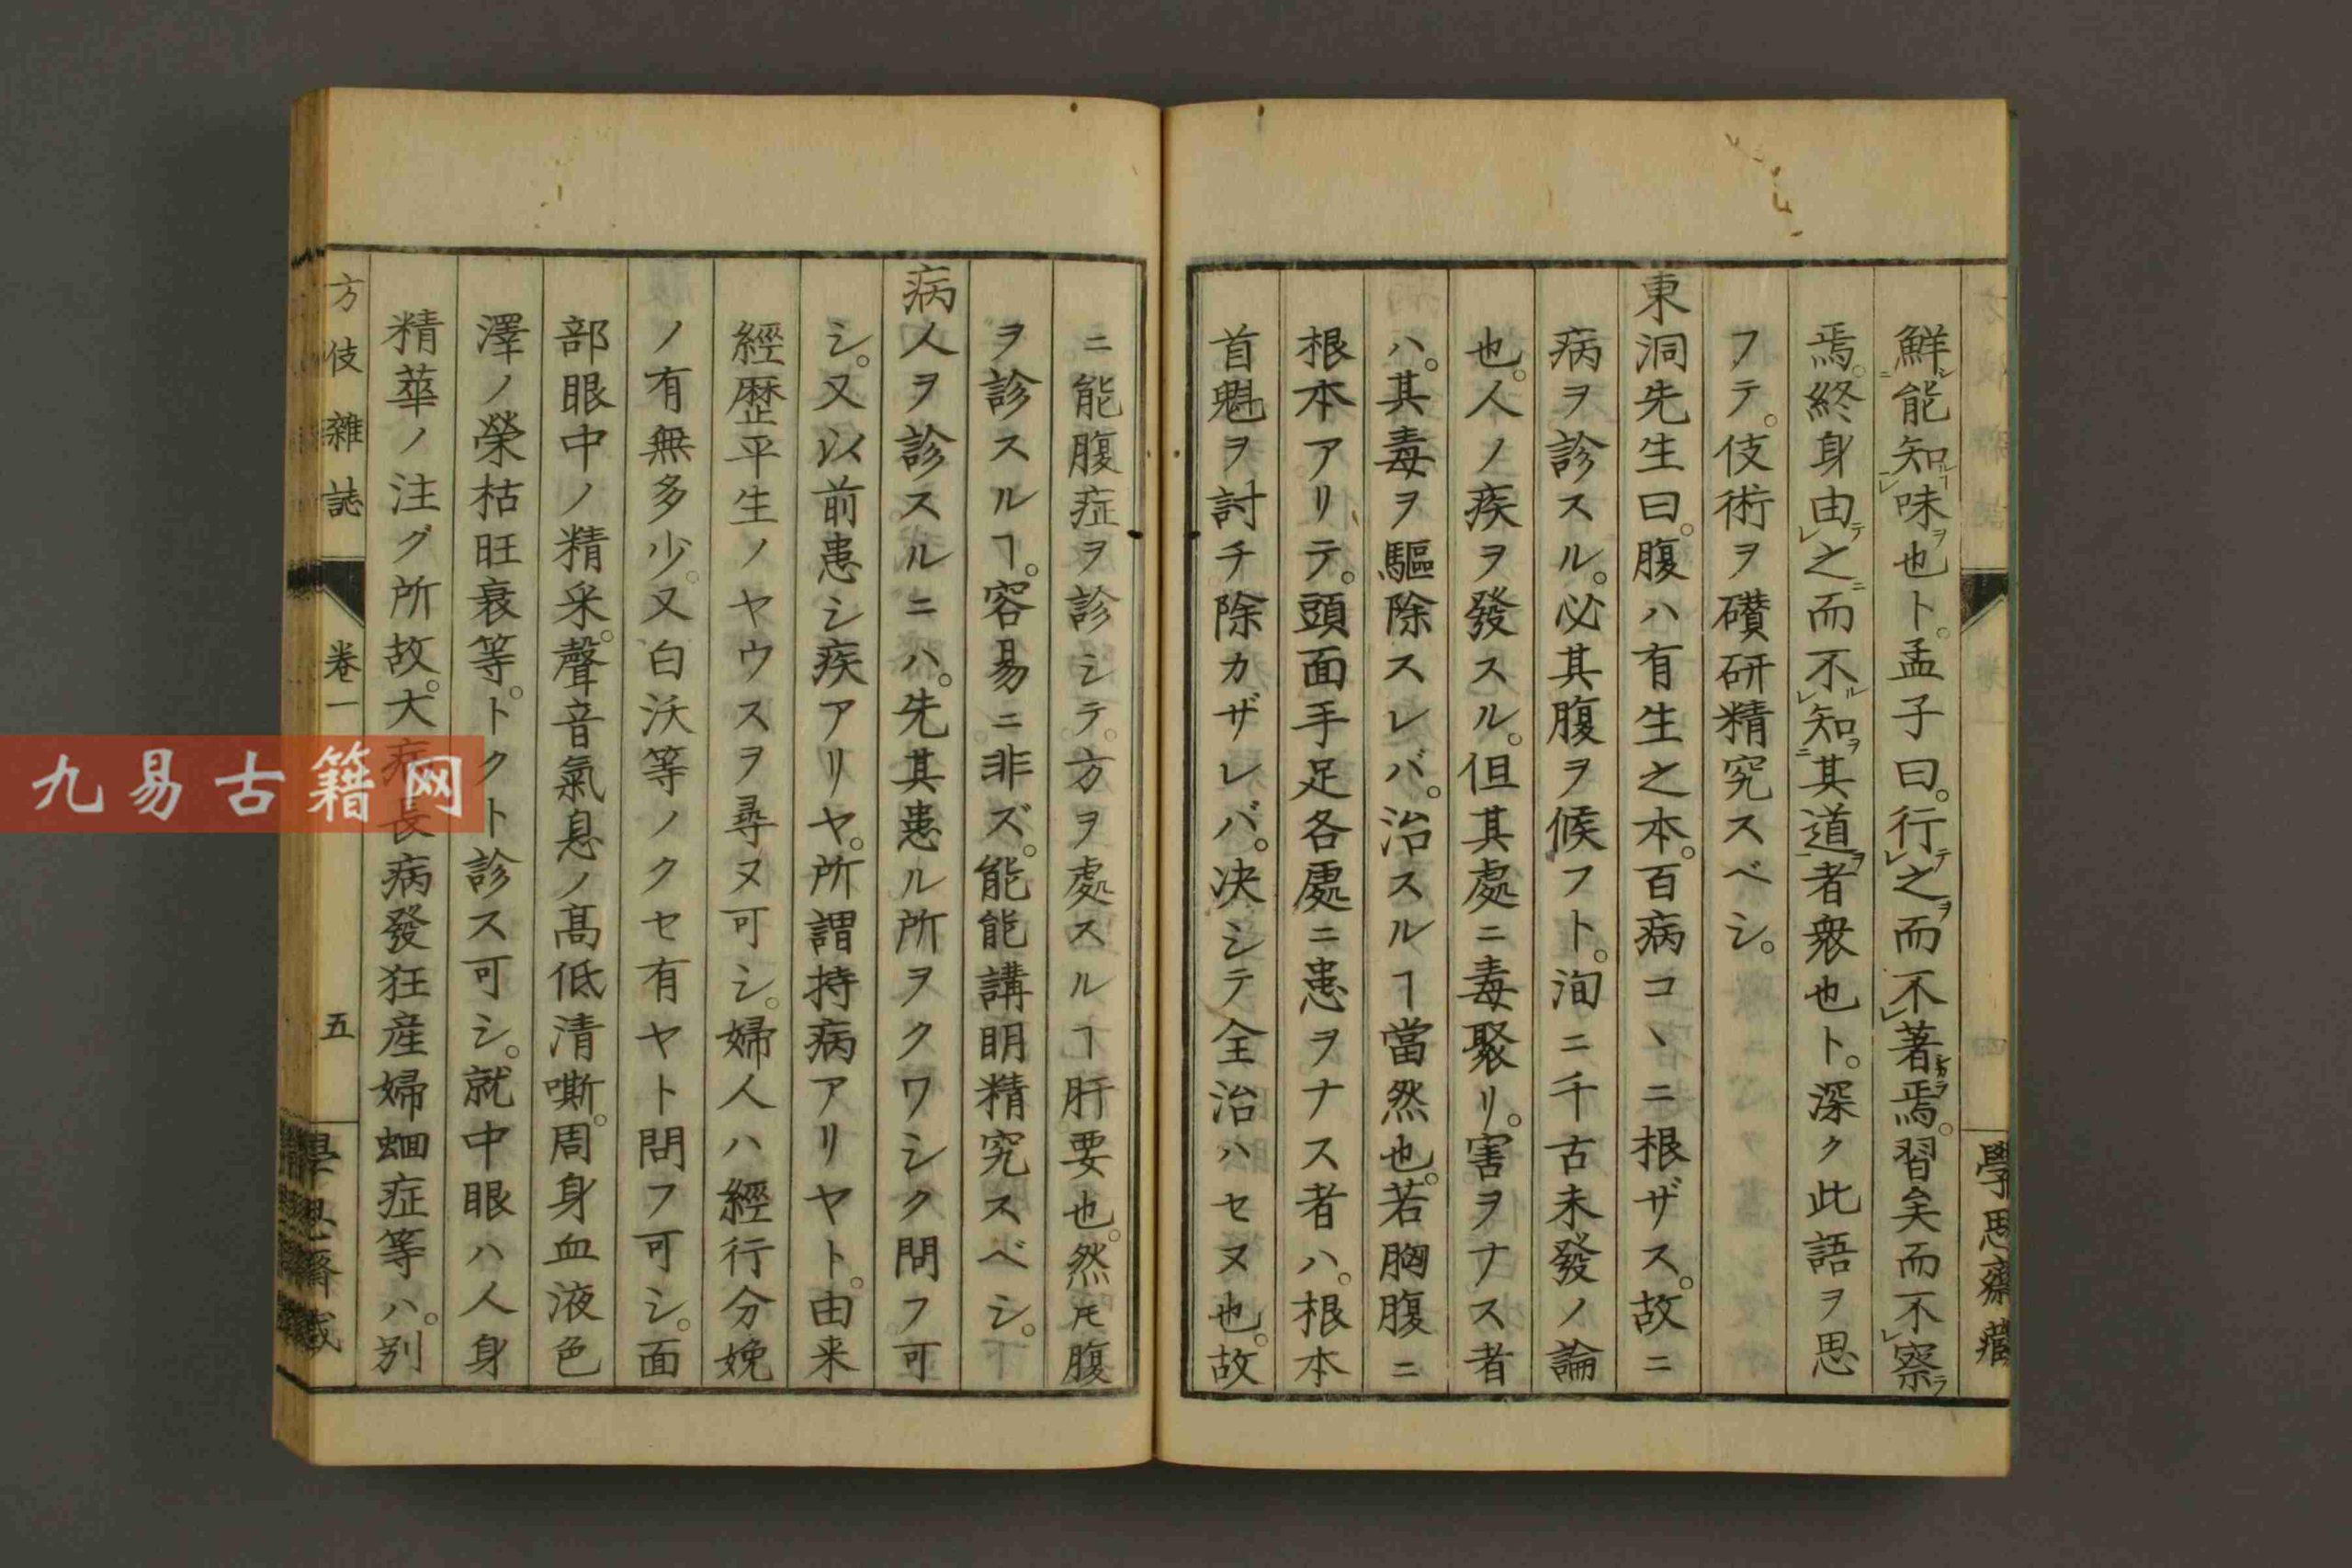 鮮能知味也ト。孟子曰。行之而不著焉。習矣而不察
焉。終身由之而不知其道者衆也ト。深ク此語ヲ思
フテ。伎術ヲ礸研精究スベシ。
東洞先生曰。腹ハ有生之本。百病コヽニ根ザス。故ニ
病ヲ診スル。必其腹ヲ候フト。洵ニ千古未發ノ論
也。人ノ疾ヲ發スル。但其處ニ毒聚リ。害ヲナス者
ハ。其毒ヲ驅除スレバ。治スルヿ當然也。若胸腹ニ
根本アリテ。頭面手足各處ニ患ヲナス者ハ。根本
首魁ヲ討チ除カザレバ。决シテ全治ハセヌ也。故
學思齋藏
ニ能腹症ヲ診シテ。方ヲ處スルヿ肝要也。然𪜈腹
ヲ診スルヿ。容易ニ非ズ。能能講明精究スベシ。
病人ヲ診スルニハ。先其患ル所ヲクワシク問フ可
シ。又以前患シ疾アリヤ。所謂持病アリヤト。由来
經歴平生ノヤウスヲ尋ヌ可シ。婦人ハ經行分娩
ノ有無多少。又白沃等ノクセ有ヤト問フ可シ。面
部眼中ノ精采。聲音氣息ノ髙低清嘶。周身血液色
澤ノ榮枯旺衰等。トクト診ス可シ。就中眼ハ人身
精華ノ注グ所故。大病長病發狂産婦蛔症等ハ。別
方伎雜誌 卷一 五
九易古籍网